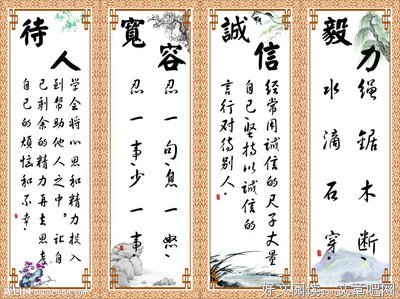 待人
学会将心思和精力投入
到帮助他人之中，让自
己剩余的精力再去思考
自己的烦恼和不幸。
寬容
忍一句息一怒
忍一事少一事
誠信
经常用诚信的尺子丈量
自己坚持以诚信的
言行对待别人。
毅力
绳锯木断，
水滴石穿。